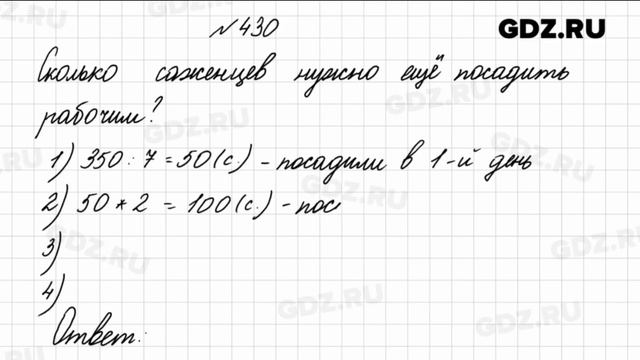 №430
GDZ.RU
Сколько саженцев нужно ещё посадить
рабочим?
1) 350 : 7 = 50 (с.) - посадили в 1-й день
2) 50 * 2 = 100 (с.) - пос
3)
4)
Ответ: